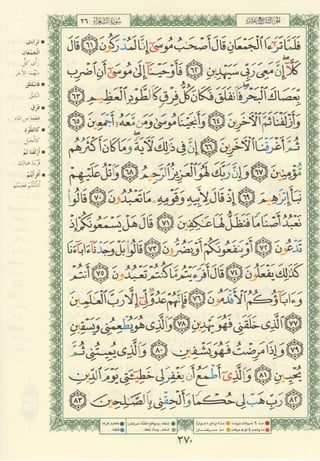 الجزء التاسع عشر
سورة الشعراء ٢٦
فَلَمَّا تَرَٰٓءَا ٱلْجَمْعَانِ قَالَ أَصْحَٰبُ مُوسَىٰٓ إِنَّا لَمُدْرَكُونَ ٦١ قَالَ
كَلَّآ إِنَّ مَعِىَ رَبِّى سَيَهْدِينِ ٦٢ فَأَوْحَيْنَآ إِلَىٰ مُوسَىٰٓ أَنِ ٱضْرِب
بِّعَصَاكَ ٱلْبَحْرَ فَٱنفَلَقَ فَكَانَ كُلُّ فِرْقٍ كَٱلطَّوْدِ ٱلْعَظِيمِ ٦٣
وَأَزْلَفْنَا ثَمَّ ٱلْءَاخَرِينَ ٦٤ وَأَنجَيْنَا مُوسَىٰ وَمَن مَّعَهُۥٓ أَجْمَعِينَ ٦٥
ثُمَّ أَغْرَقْنَا ٱلْءَاخَرِينَ ٦٦ إِنَّ فِى ذَٰلِكَ لَءَايَةً وَمَا كَانَ أَكْثَرُهُم
مُّؤْمِنِينَ ٦٧ وَإِنَّ رَبَّكَ لَهُوَ ٱلْعَزِيزُ ٱلرَّحِيمُ ٦٨ وَٱتْلُ عَلَيْهِمْ
نَبَأَ إِبْرَٰهِيمَ ٦٩ إِذْ قَالَ لِأَبِيهِ وَقَوْمِهِۦ مَا تَعْبُدُونَ ٧٠ قَالُوا۟
نَعْبُدُ أَصْنَامًا فَنَظَلُّ لَهَا عَٰكِفِينَ ٧١ قَالَ هَلْ يَسْمَعُونَكُمْ إِذْ
تَدْعُونَ ٧٢ أَوْ يَنفَعُونَكُمْ أَوْ يَضُرُّونَ ٧٣ قَالُوا۟ بَلْ وَجَدْنَآ ءَابَآءَنَا
كَذَٰلِكَ يَفْعَلُونَ ٧٤ قَالَ أَفَرَءَيْتُم مَّا كُنتُمْ تَعْبُدُونَ ٧٥ أَنتُمْ
وَءَابَآؤُكُمُ ٱلْأَقْدَمُونَ ٧٦ فَإِنَّهُمْ عَدُوٌّ لِّىٓ إِلَّا رَبَّ ٱلْعَٰلَمِينَ
٧٧ ٱلَّذِى خَلَقَنِى فَهُوَ يَهْدِينِ ٧٨ وَٱلَّذِى هُوَ يُطْعِمُنِى وَيَسْقِينِ
٧٩ وَإِذَا مَرِضْتُ فَهُوَ يَشْفِينِ ٨٠ وَٱلَّذِى يُمِيتُنِى ثُمَّ
يُحْيِينِ ٨١ وَٱلَّذِىٓ أَطْمَعُ أَن يَغْفِرَ لِى خَطِيٓـَٔتِى يَوْمَ ٱلدِّينِ
٨٢ رَبِّ هَبْ لِى حُكْمًا وَأَلْحِقْنِى بِٱلصَّٰلِحِينَ ٨٣
٣٧٠